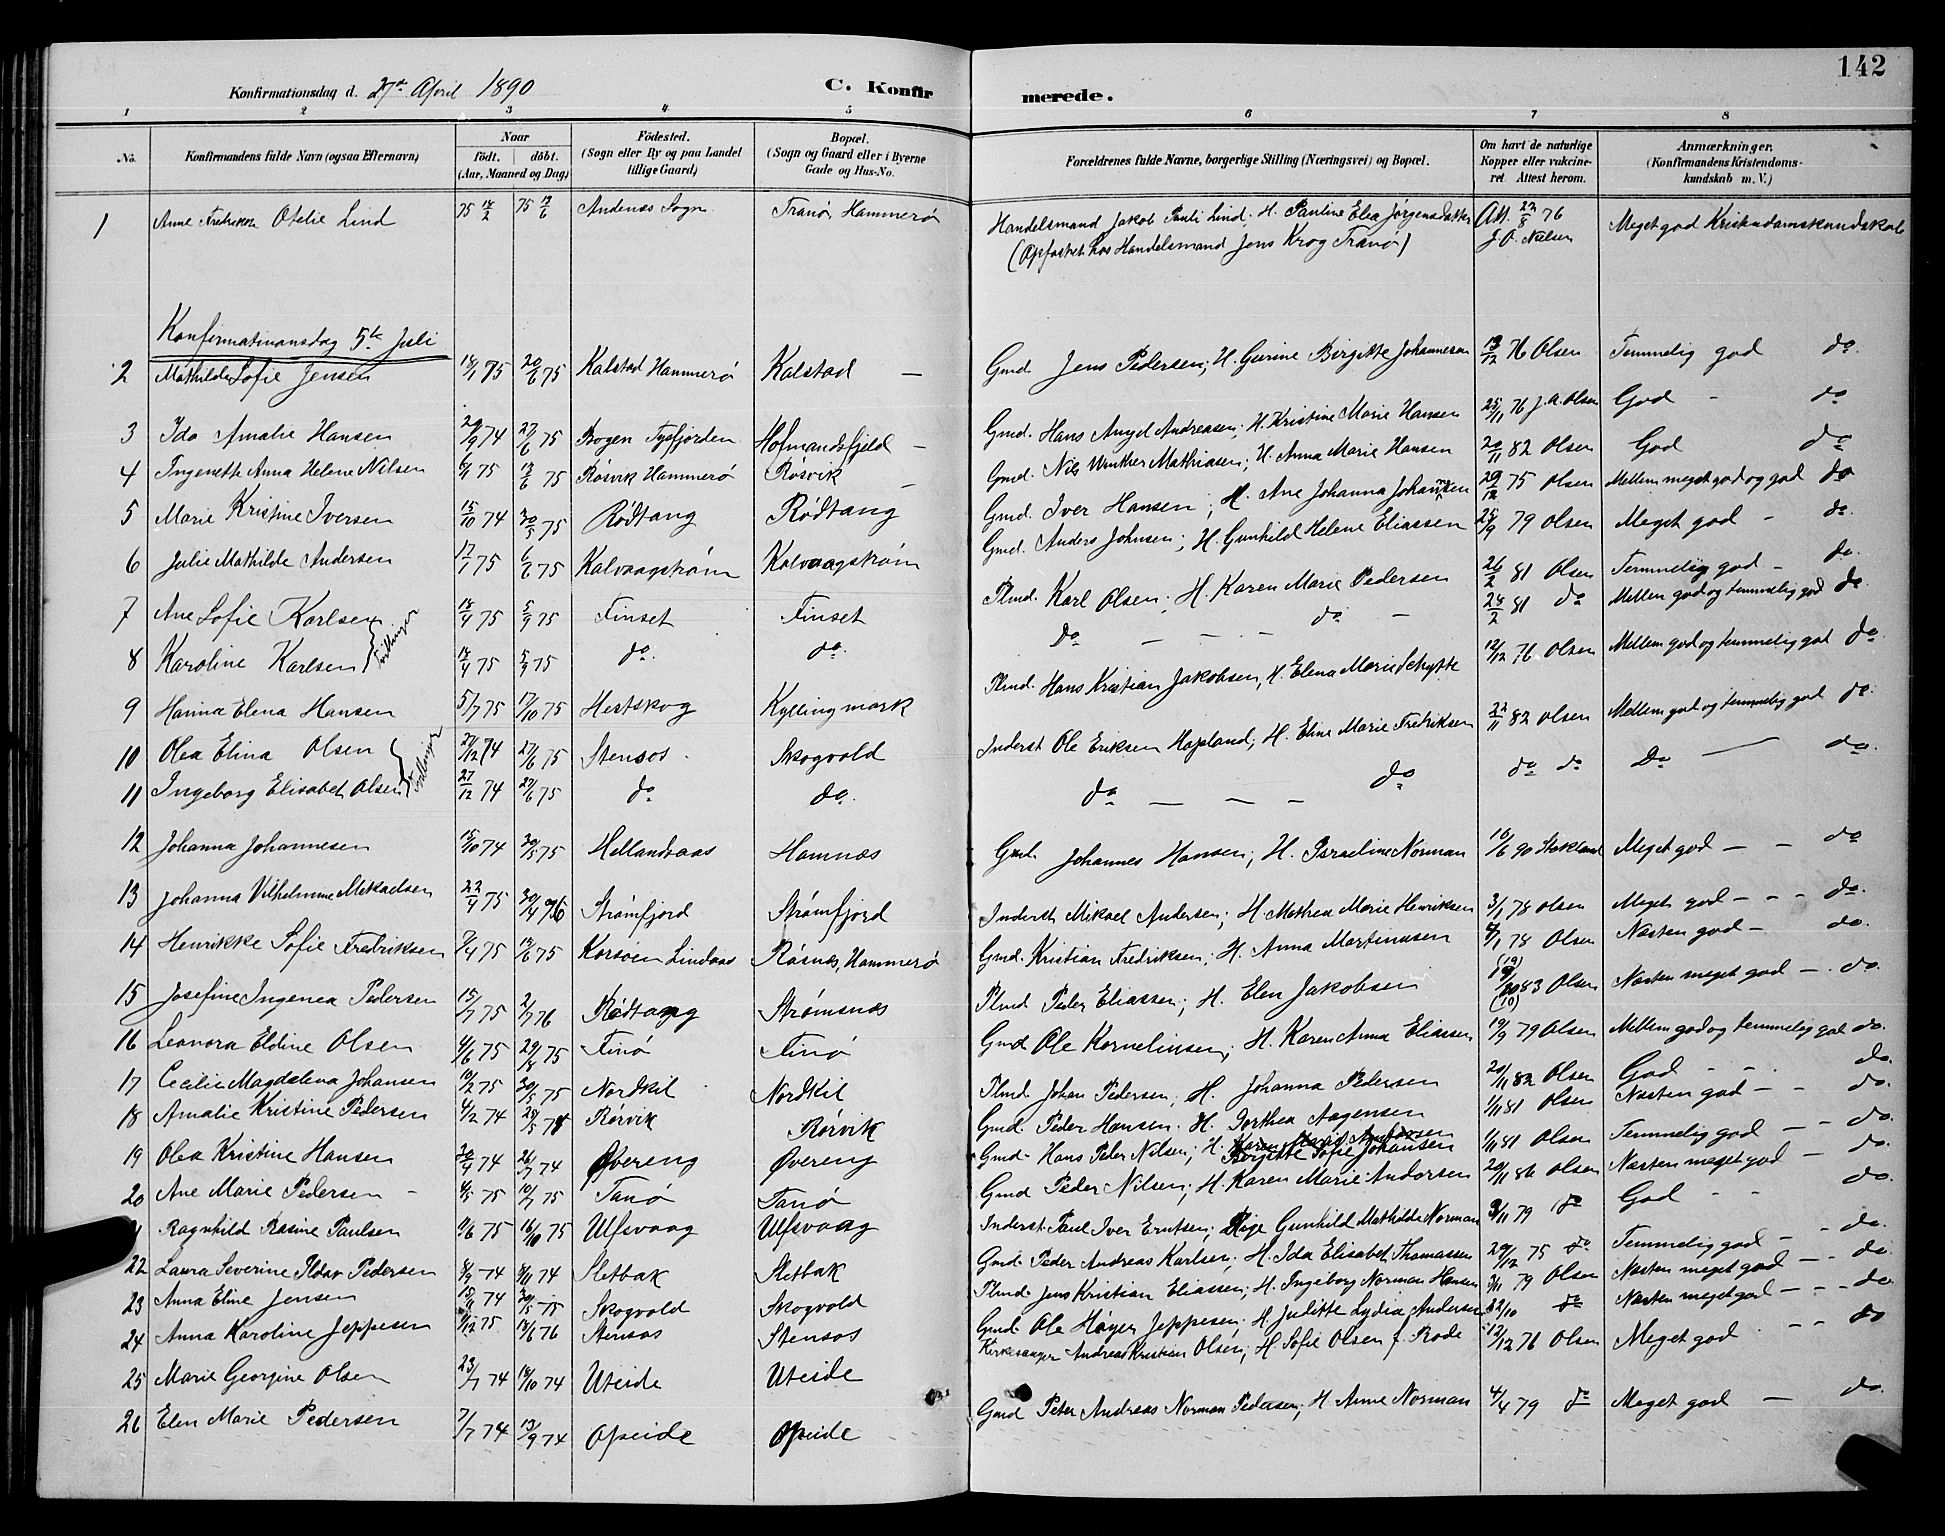 142
Konfirmationsdag d. 27de April 1890 C. Konfir merede.
1 2 3 4 5 6 7 8
No. Konfirmandens fulde Navn (ogsaa Efternavn) Naar födt. döbt. (Aar, Maaned og Dag) Födested. (Sogn eller By og paa Landet tillige Gaard) Bopæl. (Sogn og Gaard eller i Byerne Gade og Hus-No. Forældrenes fulde Navne, borgerlige Stilling (Næringsvei) og Bopæl. Om havt de naturlige Kopper eller vakcineret. Attest herom. Anmærkninger. (Konfirmandens Kristendomskundskab m. V.)
1 Anne Fredrikke Otelie Lind 75 18/2 75 13/6 Andenæs Sogn Tranø, Hammerø Handelsmand Jakob Pauli Lind; H. Pauline Elea Jørgensdatter Att. 22/8 76 Meget god Kristendomskundskab
(Opfostret hos Handelsmand Jens Krog Tranø) J. O. Nielsen
Konfirmationsdag 5te Juli
2 Mathilde Sofie Jensen 18/1 75 20/6 75 Kalstad Hammerø Kalstad — Gmd Jens Pedersen; H. Gurine Birgitte Johannesen 13/12 76 Olsen Temmelig god do.
3 Ida Amalie Hansen 29/9 74 27/6 75 Bogen Tysfjorden Hofmandsfjeld — Gmd. Hans Angel Andreasen; H. Kristine Marie Hansen 25/11 76 J. A. Olsen God - do
4 Ingenette Anna Helene Nilsen 6/1 75 13/6 75 Røsvik Hammerø Røsvik — Gmd. Nils Winther Mathiasen; H. Anna Marie Hansen 20/11 82 Olsen God do
5 Marie Kristine Iversen 15/10 74 30/5 75 Rødtang Rødtang Gmd. Iver Hansen; H. Ane Johanna Johansen 29/12 75 Olsen Mellem meget god og god do
6 Julie Mathilde Andersen 17/1 75 6/6 75 Kalvaagstrøm Kalvaagstrøm Gmd. Anders Johnsen; H. Gunhild Helene Eliassen 25/9 79 Olsen Meget god - do.
7 Ane Sofie Karlsen 18/4 75 5/9 75 Finset Finset Plmd. Karl Olsen; H. Karen Marie Pedersen 26/2 81 Olsen Temmelig god - do.
8 Karoline Karlsen } Tvillinger 18/4 75 5/9 75 do. do. do — — — do — 28/2 81 do Mellem god og temmelig god do
9 Hanna Elena Hansen 5/7 75 17/10 75 Hertskog Kyllingmark Plmd. Hans Kristian Jakobsen, H. Elena Marie Schytte 12/12 76 Olsen Mellem god og temmelig god do
10 Olea Elina Olsen 27/12 74 27/6 75 Stensos Skogvold Inderst Ole Eriksen Hopland; H. Eline Marie Fredriksen 22/11 82 Olsen Mellem god og temmelig god do.
11 Ingeborg Elisabet Olsen } Tvillinger 27/12 74 27/6 75 do do. do — — — do do do Do — do.
12 Johanna Johannesen 15/10 74 30/5 75 Hellandsaas Hamnæs Gmd. Johannes Hansen; H. Israeline Norman 10/6 90 Stokland Meget god — — do
13 Johanna Vilhelmine Mikaelsen 22/4 75 30/4 76 Strømfjord Strømfjord Inderst Mikael Andersen; H. Mathea Marie Henriksen 3/1 78 Olsen Meget god — - - do.
14 Henrikke Sofie Fredriksen 7/4 75 13/6 75 Korsøen Lindaas Røsnes, Hammerø Gmd. Kristian Fredriksen; H. Anna Martinusen 8/1 78 Olsen Næsten god — do.
15 Josefine Ingenea Pedersen 15/7 75 2/7 76 Rødtang Strømsnæs Plmd Peder Eliassen; H. Elen Jakobsen 83 Olsen Næsten meget god — . do.
16 Leonora Eldine Olsen 4/6 75 29/8 75 Finø Finø Gmd Ole Kornelinsen; H. Karen Anna Eliassen 19/9 79 Olsen Mellem god og temmelig god do.
17 Cecilie Magdalena Johansen 10/2 75 30/5 75 Nordkil Nordkil Plmd Johan Pedersen; H. Johanna Pedersen 20/11 82 Olsen God - - do.
18 Amalie Kristine Pedersen 4/2 74 Rørvik Rørvik Gmd. Peder Hansen. H. Dorthea Aagensen 1/11 81 Olsen Næsten god — — do.
19 Olea Kristine Hansen 30/4 74 26/7 74 Øvereng Øvereng Gmd. Hans Peder Nilsen; H. Birgitte Sofie Johansen 1/11 81 Olsen Temmelig god — — do.
20 Ane Marie Pedersen - 4/5 75 10/7 75 Tanø Tanø Gmd Peder Nilsen; H. Karen Marie Andersen 20/11 86 Olsen Næsten meget god — do.
Ragnhild Rasine Paulsen 11/6 75 16/10 75 Ulfsvaag Ulfsvaag Inderst. Paul Iver Erntsen; Pige Gunhild Mathilde Norman 3/11 79 do God - - do.
22 Laura Severine Pedersen 8/9 74 8/11 74 Sletbak Sletbak Gmd Peder Andreas Karlsen; H. Ida Elisabet Thomassen 29/12 75 do Temmelig god — - do.
23 Anna Eline Jensen 15/11 74 30/5 75 Skogvold Skogvold Plmd. Jens Kristian Eliassen; H. Ingeborg Norman Hansen 3/11 79 Olsen Næsten meget god — - do.
24 Anna Karoline Jeppesen 75 18/6 76 Stensos Stensos Gmd Ole Høyer Jeppesen; H. Julitte Lydia Andersen 22/10 do Næsten meget god — - - do
25 Marie Georgine Olsen 23/7 74 18/10 74 Uteide Uteide Kirkesanger Andreas Kristian Olsen; H. Sofie Olsen f. Rode 12/12 76 Olsen Meget god - - do
26 Elen Marie Pedersen 7/7 74 13/9 74 Opeide Opeide Gmd Peter Andreas Norman Pedersen; H Anne Norman 4/4 79 do Meget god — do.